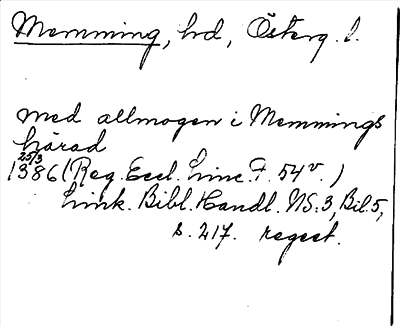 Memming, hd, Österg. l.
med allmogen i Memmings
härad
25/3
1386 (Reg. Eccl. Linc. F. 54v.)
Link. Bibl. Handl. NS: 3, Bil. 5,
s. 217. regest.